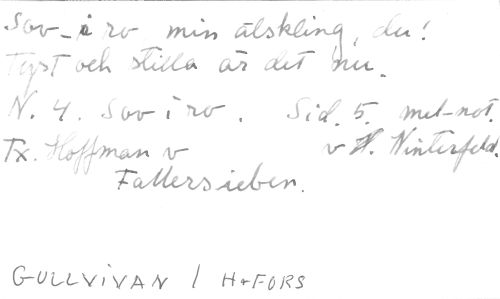 Sov i ro min älskling, du!
Tyst och stilla är det nu.
N. 4. Sov i ro. Sid. 5. mel-not.
Tx. Hoffman v v H. Winterfeld.
Fallersleben.
GULLVIVAN / H-FORS